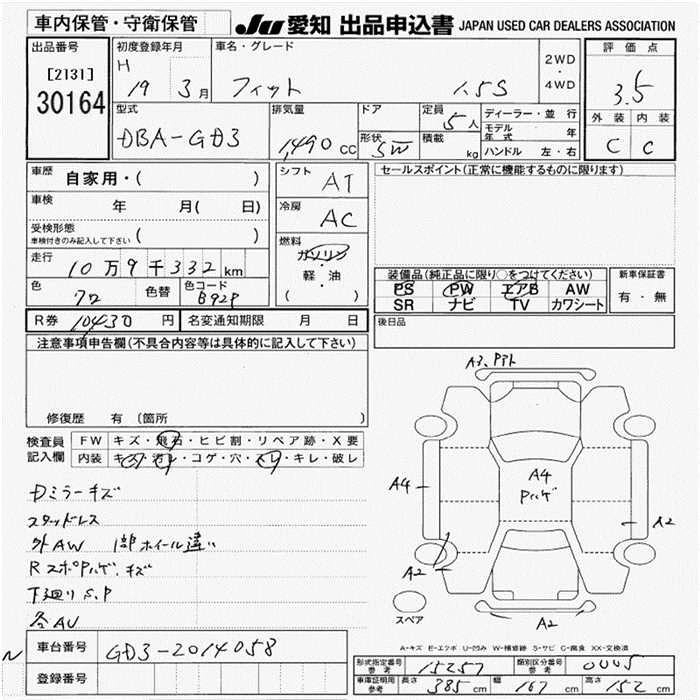 車内保管・守衛保管
JU 愛知 出品申込書 JAPAN USED CAR DEALERS ASSOCIATION
出品番号
[2131]
30164
初度登録年月
H 19 3月
車名・グレード
フィット 1.5S
2WD
・
4WD
評価点
3.5
外装 内装
C C
型式
DBA-GD3
排気量
1,490 cc
ドア
形状
SW
定員
5人
積載
kg
ディーラー・並行
モデル年式 年
ハンドル 左・右
車歴
自家用・( )
車検
年 月( 日)
受検形態
車検付きのみ記入して下さい ( )
走行
10万9千332km
色
クロ
色替
色コード
B92P
シフト
AT
冷房
AC
燃料
ガソリン
・
軽・油
( )
セールスポイント(正常に機能するものに限ります)
装備品(純正品に限り○をつけてください)
PS PW エアB AW
SR ナビ TV カワシート
新車保証書
有・無
後日品
R券 10430円
名変通知期限 月 日
注意事項申告欄(不具合内容等は具体的に記入して下さい)
修復歴 有 〔箇所 〕
検査員記入欄
FW キズ・飛石・ヒビ割・リペア跡・X要
内装 キズ・汚レ・コゲ・穴・スレ・キレ・破レ
Dミラーキズ
スタッドレス
外AW 1部ホイール違い
下廻りS.P
A3.
A4
A4
A2
A2
A2
スペア
A・キズ E・エクボ U・凹み W・補修跡 S・サビ C・腐食 XX・交換済
N
車台番号 GD3-2014058
登録番号
形式指定番号 参考 15257
類別区分番号 参考 0005
車庫証明用 参考 長さ 385cm 幅 167cm 高さ 152cm